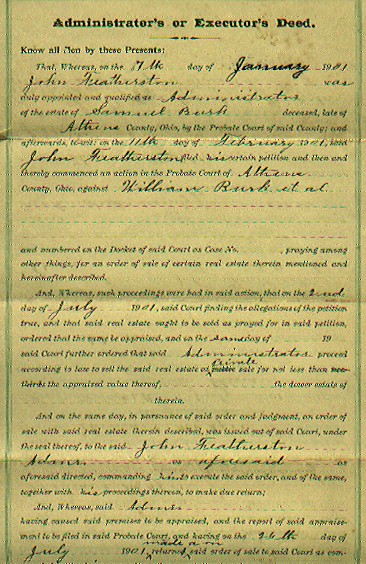 Administrator's or Executor's Deed.
Know all Men by these Presents:
That, Whereas, on the 7th day of January 1901
John Featherston was
duly appointed and qualified as Administrator
of the estate of Samuel Burk deceased, late of
Athens County, Ohio, by the Probate Court of said County; and
afterwards, to-wit: on the 11th day of February 1901, said
John Featherston filed his certain petition and then and
thereby commenced an action in the Probate Court of Athens
County, Ohio, against William Burk et al.
and numbered on the Docket of said Court as Case No. , praying among
other things, for an order of sale of certain real estate therein mentioned and
hereinafter described.
And, Whereas, such proceedings were had in said action, that on the 2nd
day of July 1901, said Court finding the allegations of the petition
true, and that said real estate ought to be sold as prayed for in said petition,
ordered that the same be appraised, and on the same day of 19
said Court further ordered that said Administrator proceed
private
according to law to sell the said real estate at public sale for not less than two-
thirds the appraised value thereof, the dower estate of
therein.
And on the same day, in pursuance of said order and judgment, an order of
sale with said real estate therein described, was issued out of said Court, under
the seal thereof, to the said John Featherston
Admr. as aforesaid as
aforesaid directed, commanding him to execute the said order, and of the same,
together with his proceedings thereon, to make due return;
And, Whereas, said Admr.
having caused said premises to be appraised, and the report of said appraise-
ment to be filed in said Probate Court, and having on the 26th day of
made a on
July 1901, returned said order of sale to said Court as com-